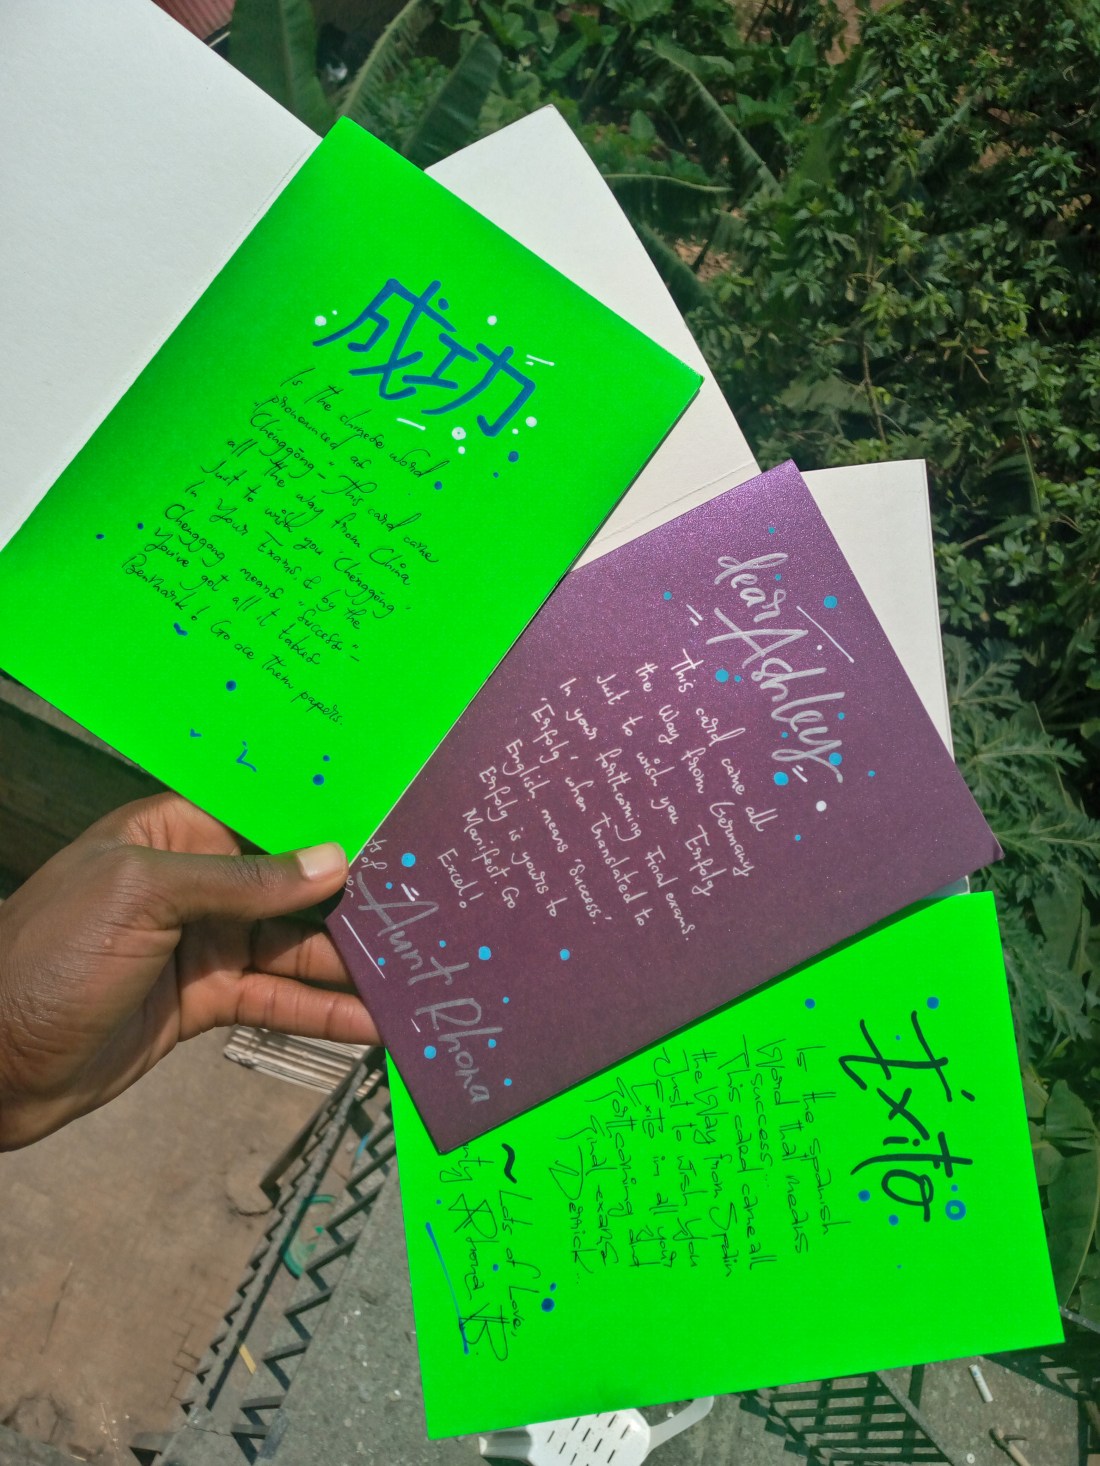 成功
Is the chinese word
pronounced as
"Chénggōng" - This card came
all the way from China
Just to wish you 'Chénggōng'
In your Exams & by the
Chenggong means "Success" -
You've got all it takes
Benkhark! Go ace them papers.
dear Ashley
This card came all
the way from Germany
Just to wish you Enfoly
In your forthcoming Final exams.
'Enfoly' when translated to
English means 'Success'.
Enfoly is yours to
Manifest. Go
Excel!
of
Aunt Rhona
Éxito
Is the Spanish
Word that means
success...
This card came all
the way from Spain
Just to wish you
Exito in all your
forthcoming and
final exams
Derrick..
~ Lots of Love,
Rhona